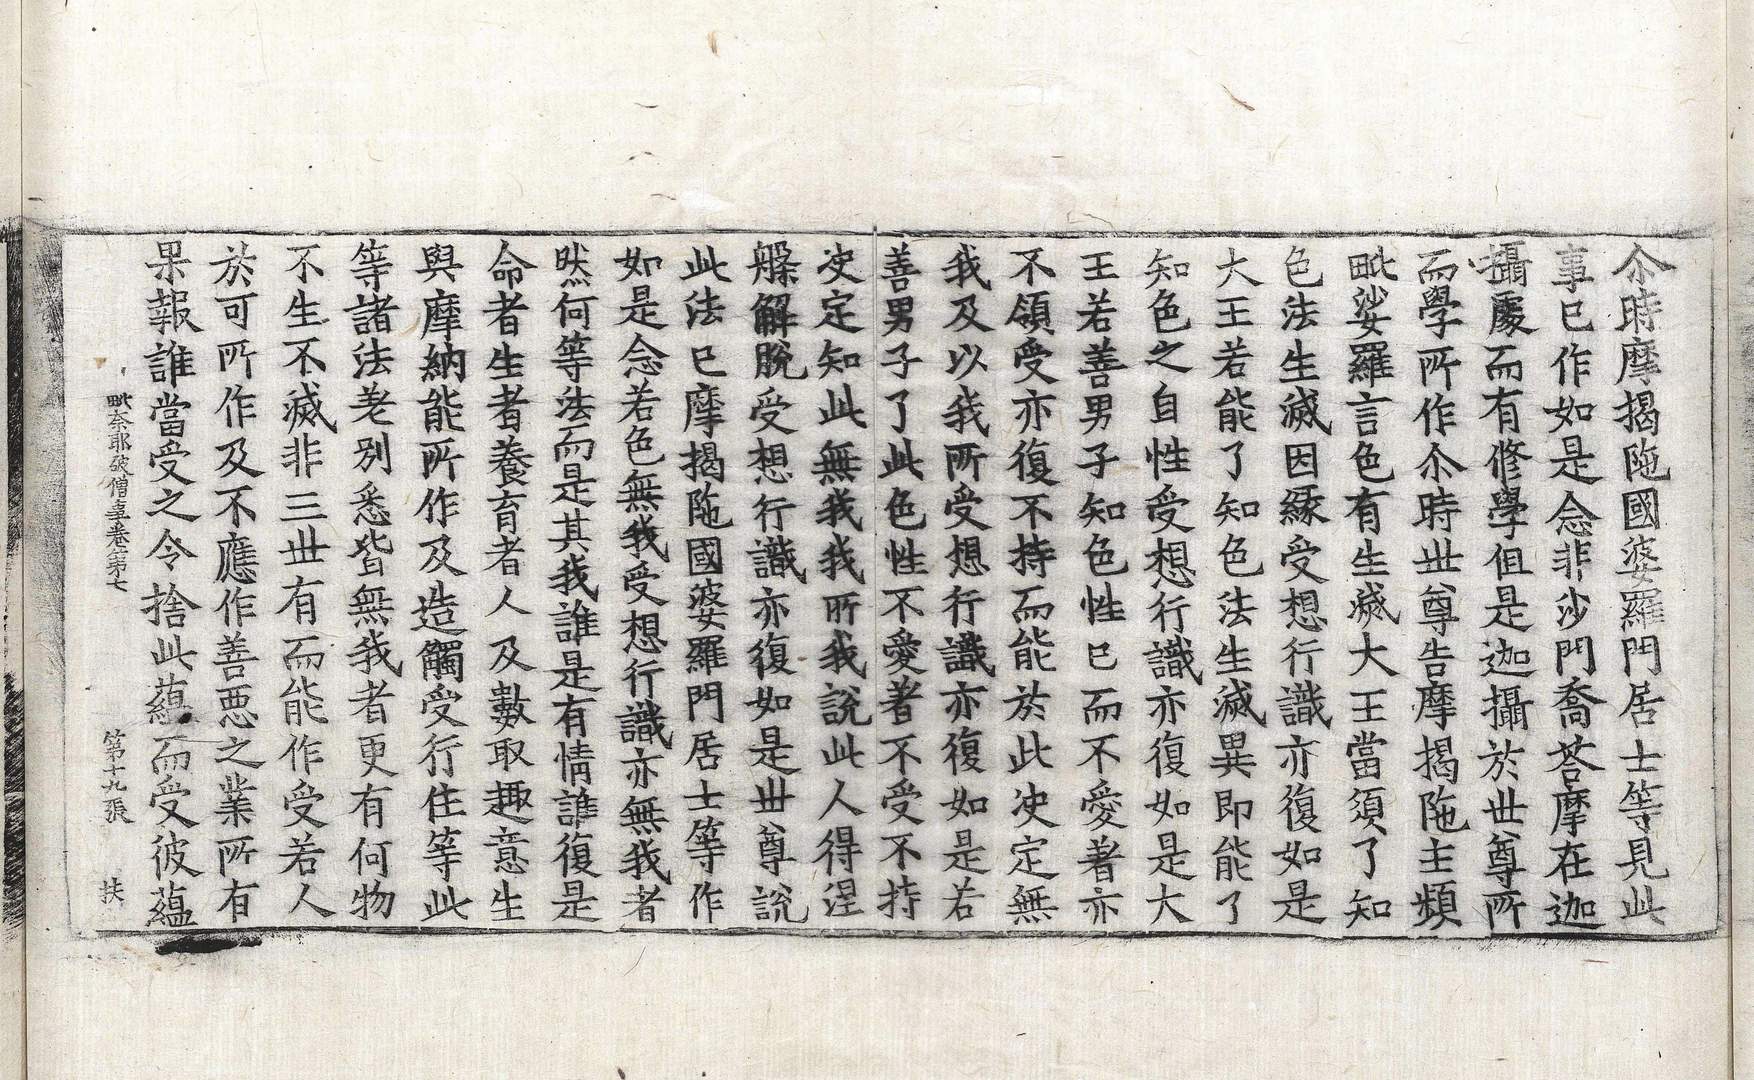 尒時摩揭陁國婆羅門居士等見此
事已作如是念非沙門喬荅摩在迦
攝處而有修學但是迦攝於世尊所
而學所作尒時世尊告摩揭陁主頻
毗娑羅言色有生滅大王當須了知
色法生滅因緣受想行識亦復如是
大王若能了知色法生滅異即能了
知色之自性受想行識亦復如是大
王若善男子知色性已而不愛著亦
不領受亦復不持而能於此决定無
我及以我所受想行識亦復如是若
善男子了此色性不愛著不受不持
决定知此無我我所我說此人得涅
槃解脫受想行識亦復如是世尊說
此法已摩揭陁國婆羅門居士等作
如是念若色無我受想行識亦無我者
然何等法而是其我誰是有情誰復是
命者生者養育者人及數取趣意生
與摩納能所作及造觸受行住等此
等諸法差別悉皆無我者更有何物
不生不滅非三世有而能作受若人
於可所作及不應作善惡之業所有
果報誰當受之令捨此蘊而受彼蘊
毗奈耶破僧事卷第七 第十九張 扶